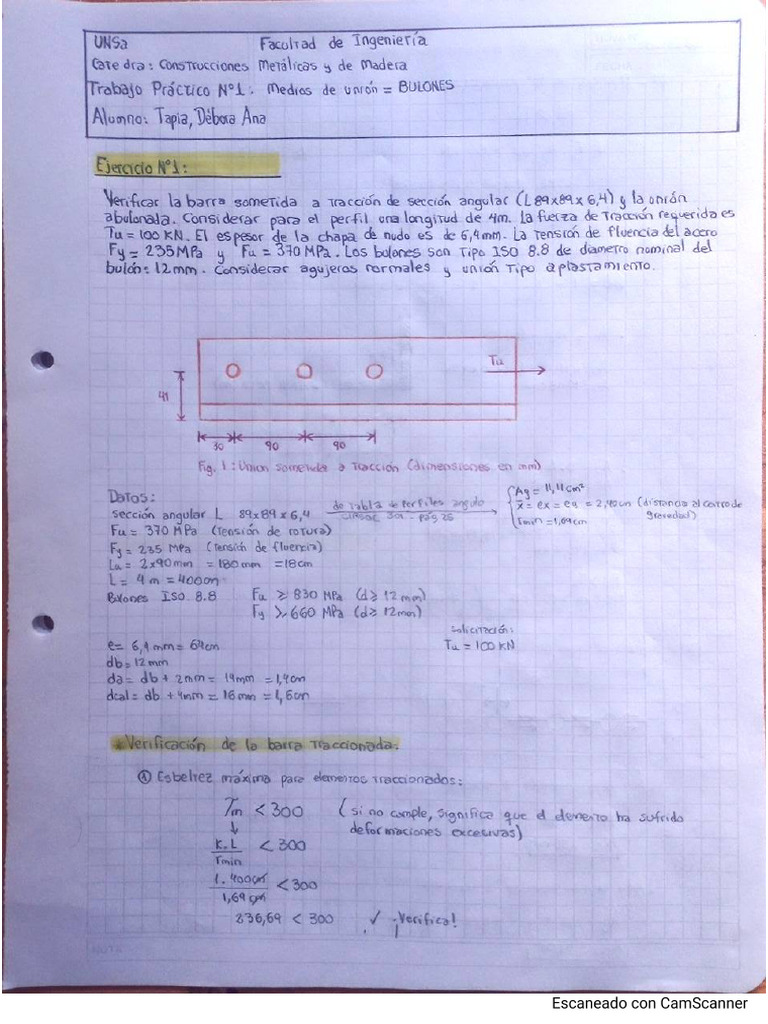 UNSa Facultad de Ingeniería
Cátedra: Construcciones Metálicas y de Madera
Trabajo Práctico N°1. Medios de unión = BULONES
Alumno: Tapia, Débora Ana
Ejercicio N°1:
Verificar la barra sometida a tracción de sección angular (L 89x89x6,4) y la unión
abulonada. Considerar para el perfil una longitud de 4m. La fuerza de Tracción requerida es
Tu = 100 KN. El espesor de la chapa de nudo es de 6,4 mm. La Tensión de fluencia del acero
Fy = 235 MPa y Fu = 370 MPa. Los bulones son Tipo ISO 8.8 de diametro nominal del
bulón: 12 mm. Considerar agujeros normales y unión Tipo aplastamiento.
Tu
41
30 90 90
Fig. 1: Unión sometida a Tracción (dimensiones en mm)
Datos:
sección angular L 89x89x6,4 de Tabla de Perfiles angulo
Fu = 370 MPa (Tensión de rotura)
Fy = 235 MPa (Tensión de fluencia)
La = 2x90mm = 180mm = 18cm
L = 4 m = 400cm
Bulones ISO 8.8 Fu ≥ 830 MPa (d ≥ 12 mm)
Fy ≥ 660 MPa (d ≥ 12mm)
Ag = 11,11 cm²
x̄ = ex = ey = 2,40 cm (distancia al centro de
gravedad)
rmin = 1,69cm
Solicitación:
Tu = 100 KN
e = 6,4 mm = 64cm
db = 12 mm
da = db + 2mm = 14mm = 1,4cm
dcal = db + 4mm = 16mm = 1,6cm
* Verificación de la barra Traccionada:
① Esbeltez máxima para elementos Traccionados:
Tm < 300 (si no cumple, significa que el elemento ha sufrido
deformaciones excesivas)
↓
K.L / rmin < 300
1. 400cm / 1,69 cm < 300
236,69 < 300 ✓ ¡Verifica!
NOTA
Escaneado con CamScanner